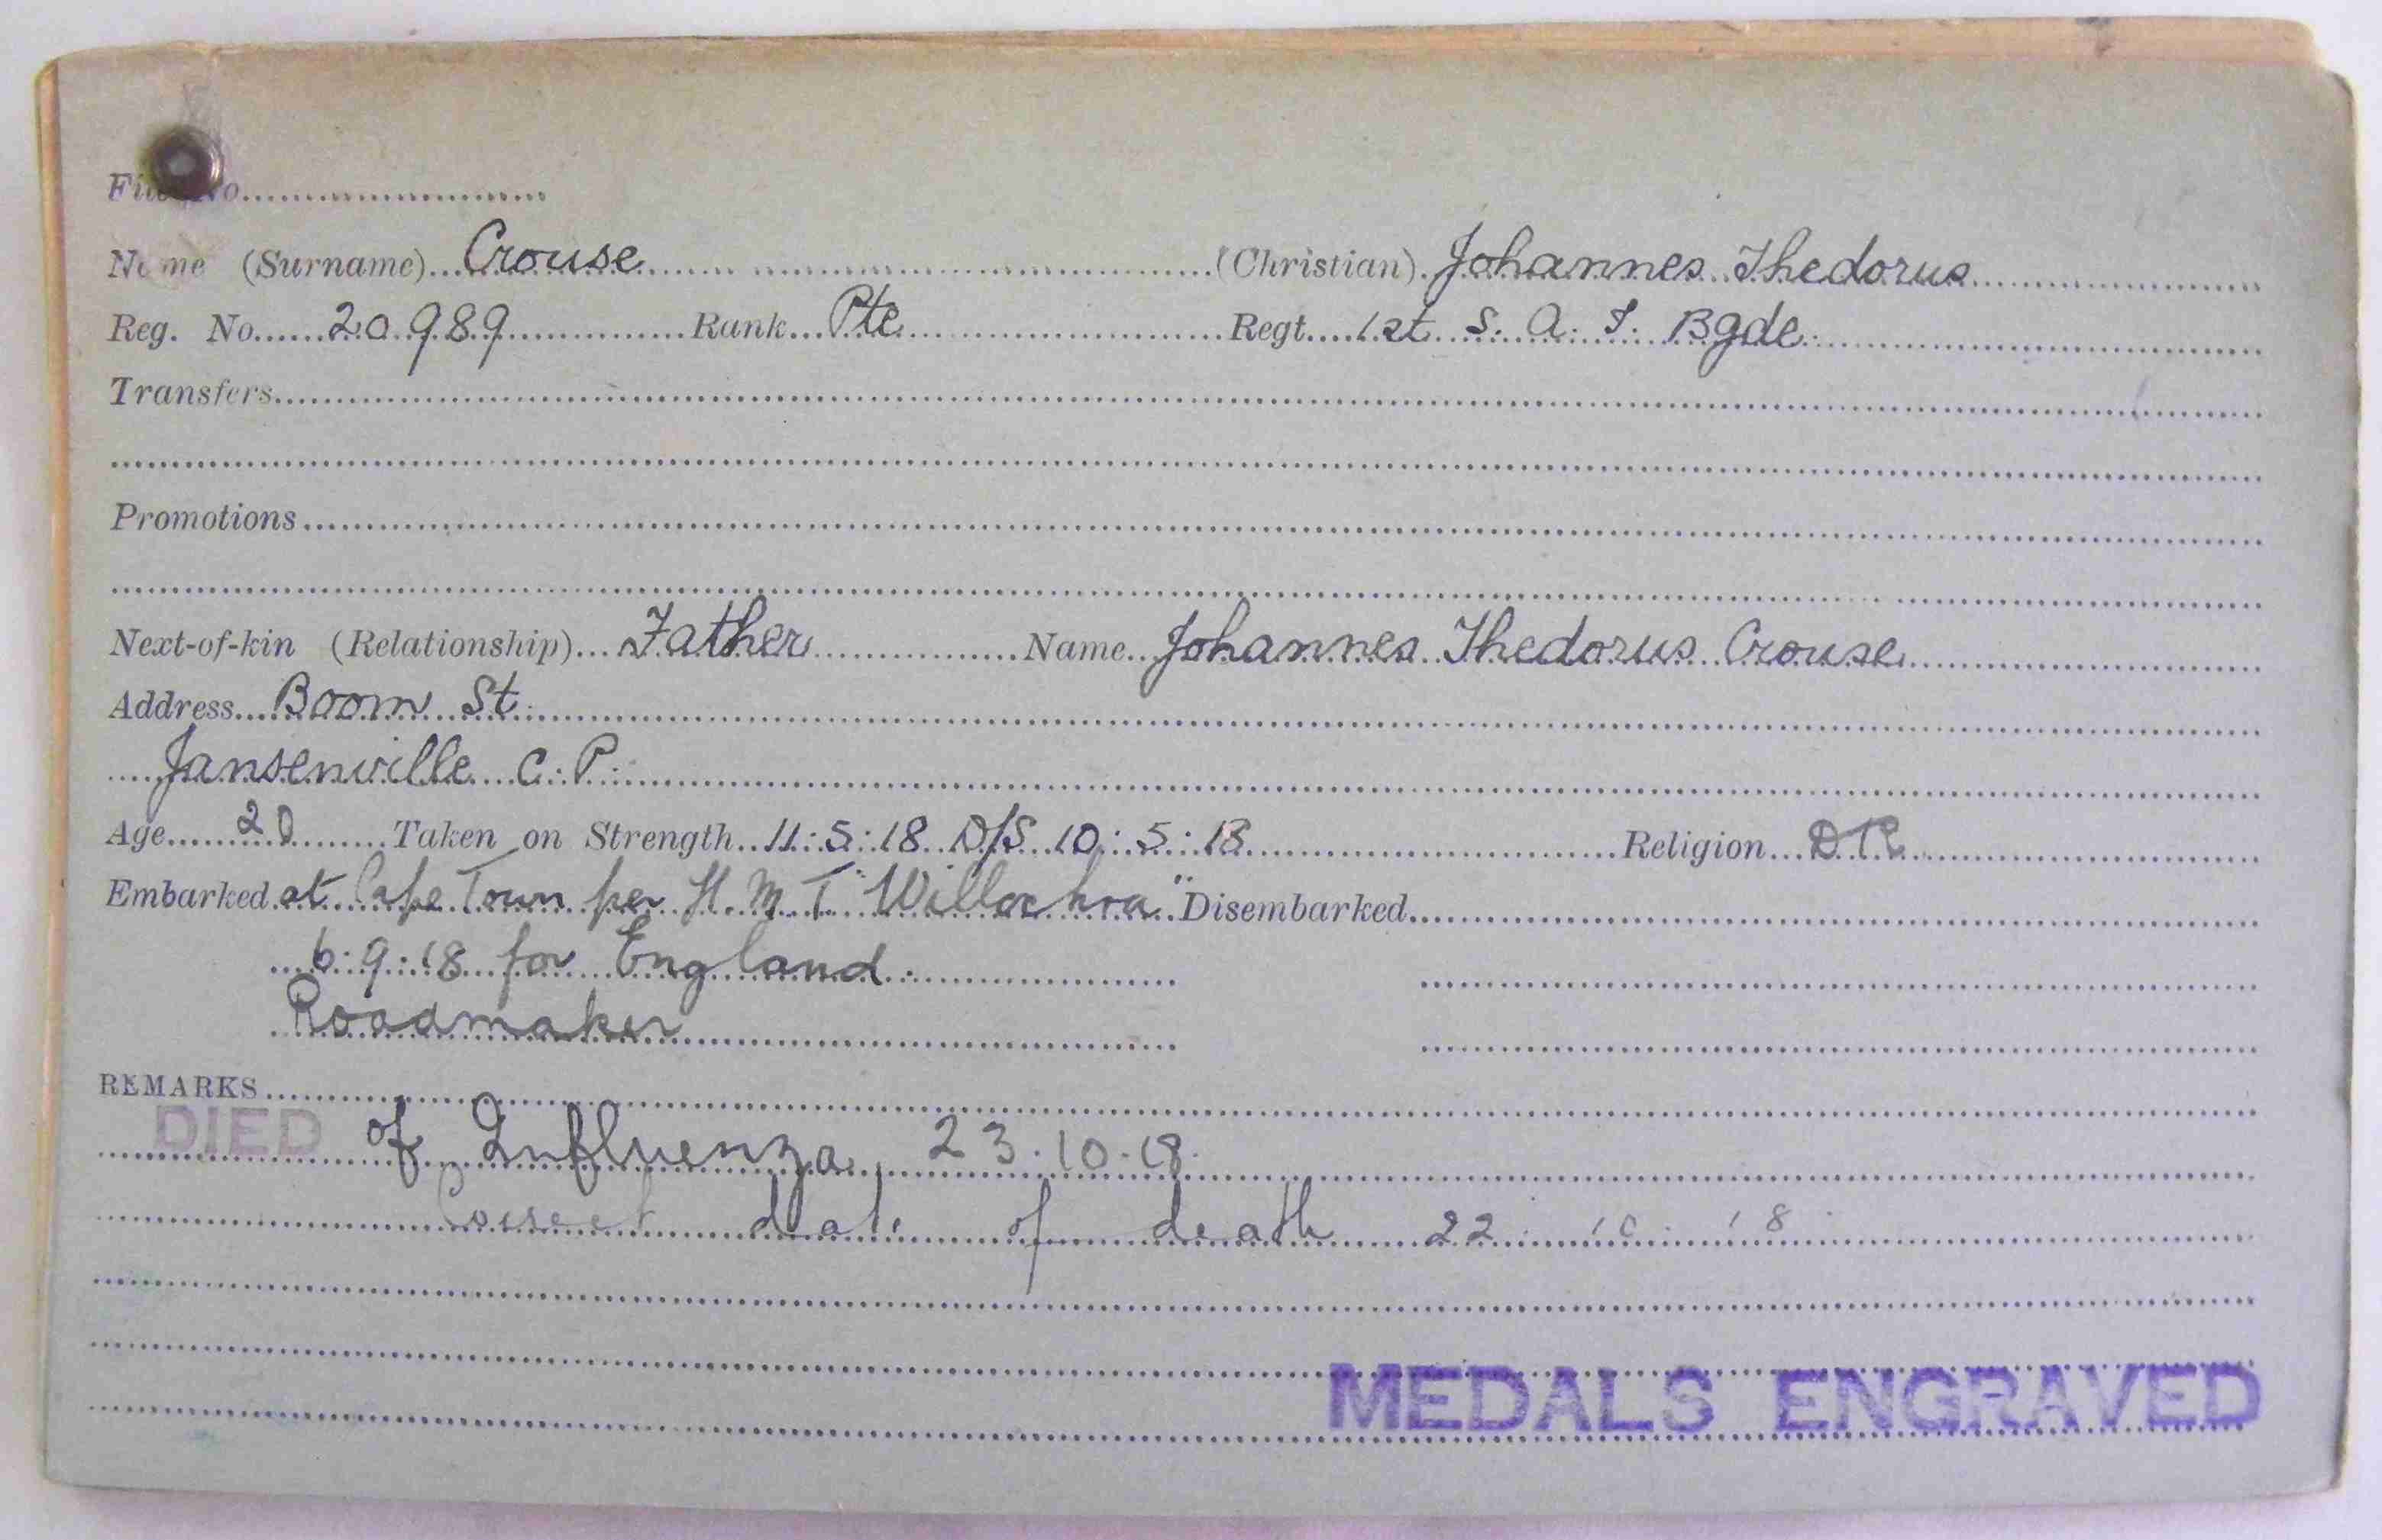 File No
Name (Surname) Crouse (Christian) Johannes Thedorus
Reg. No. 20989 Rank Pte Regt. 1st S. A. I. Bgde
Transfers
Promotions
Next-of-kin (Relationship) Father Name Johannes Thedorus Crouse
Address Boom St.
Jansenville C. P.
Age 20 Taken on Strength 11:5:18 D/S 10:5:18 Religion
Embarked at Cape Town per H.M.T. "Willochra" Disembarked
6:9:18 for England.
Roadmaker
REMARKS
DIED of Influenza 23.10.18.
Correct date of death 22.10.18.
MEDALS ENGRAVED